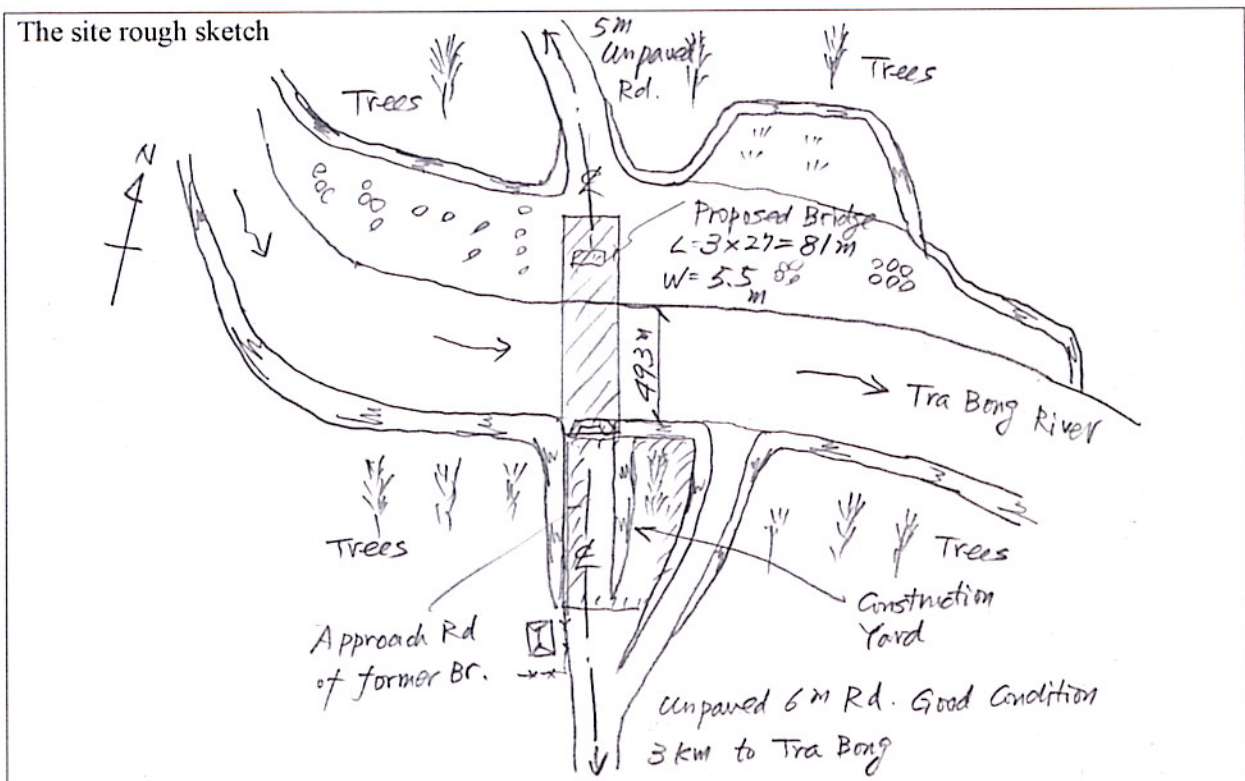 The site rough sketch
5m
Unpaved
Rd.
Trees
Trees
N
℄
Proposed Bridge
L=3×27=81m
W=5.5m
49.3m
Tra Bong River
Trees
℄
Trees
Construction
Yard
Approach Rd
of former Br.
Unpaved 6m Rd. Good Condition
3km to Tra Bong